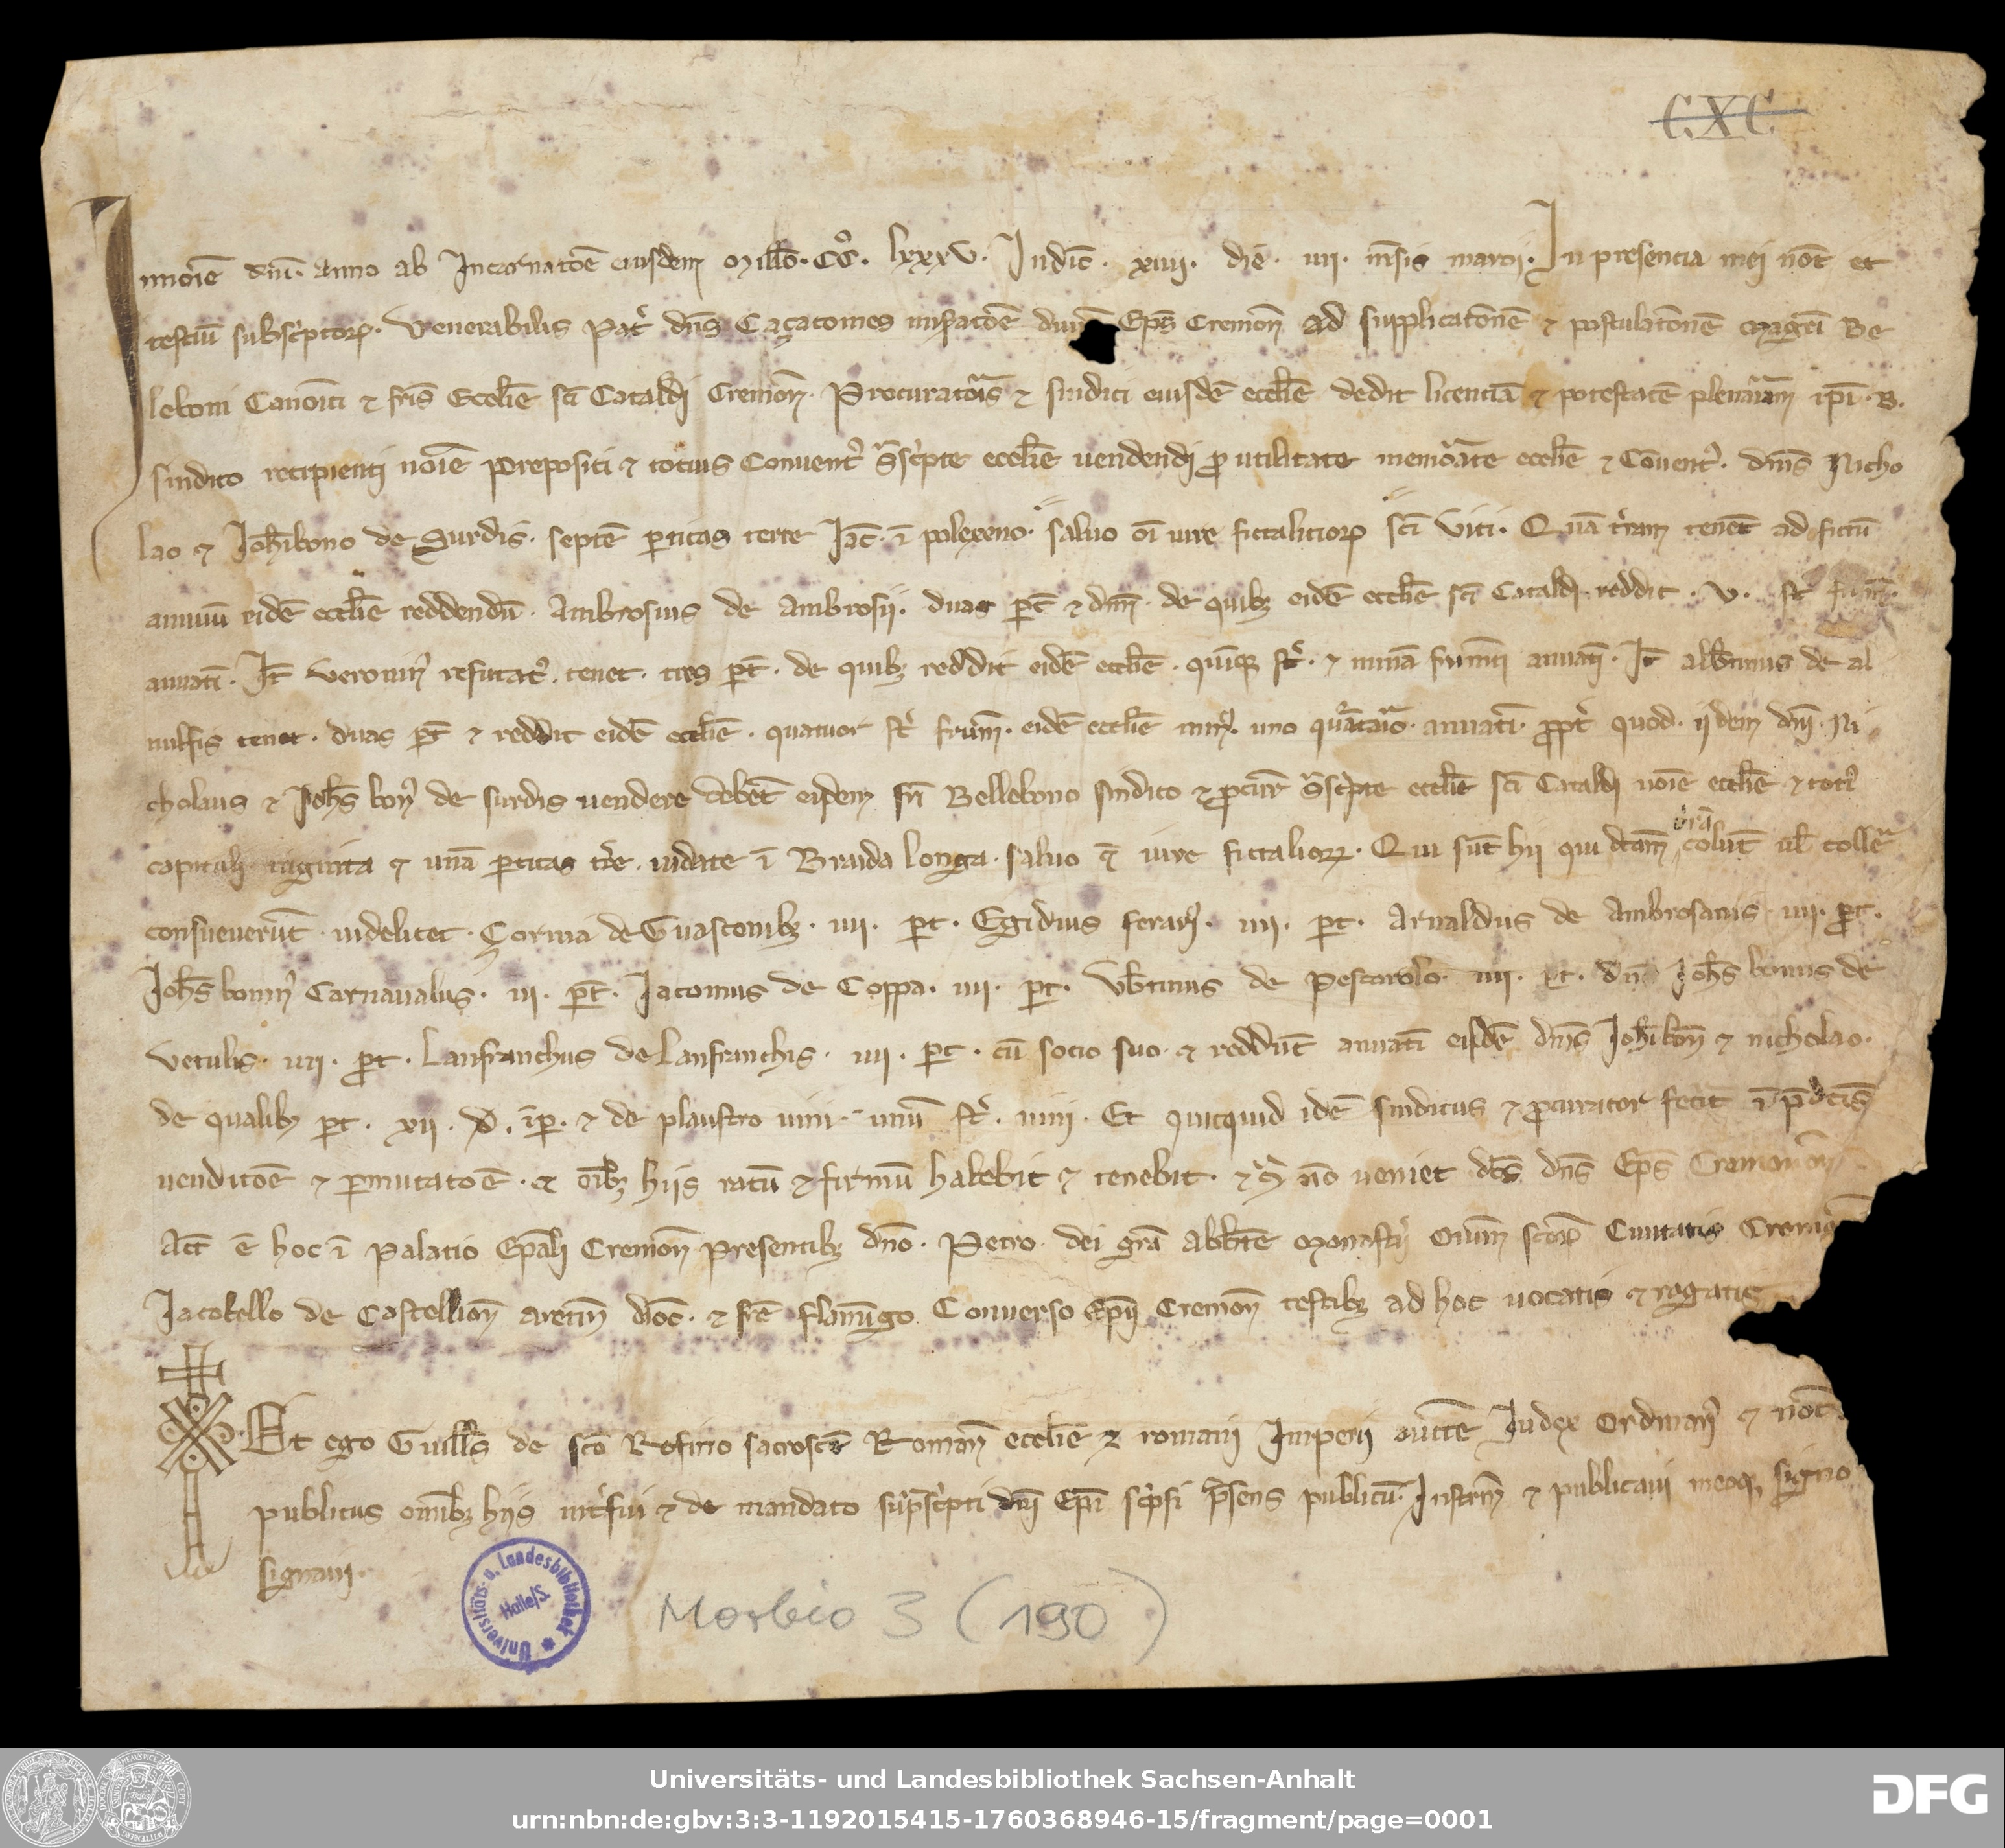 CXC
In noīe dnī. anno ab Incarnatōe eiusdem Millō. CCº. lxxxv. Indic̄. xiiij. die. iiij. m̄sis marcij. In presencia mei not̄ et
testiū subsc̓ptorꝝ. Venerabilis pat̓ dn̄s Caçacomes miseratōe diuī Ep̄s Cremon̄ ad supplicatōnē ⁊ postulatōnē Magr̄i Be
leboni Canoīci ⁊ fr̄is Eccl̄ie sc̄i Cataldi Cremon̄. Procuratoris ⁊ sindici eiusdē eccl̄ie dedit licentiā ⁊ potestatē plenariam ip̄i. B.
sindico recipienti noīe prepositi ⁊ totius Conuent̓ sͣsc̓pte eccl̄ie uendendi ꝓ utilitate memorate eccl̄ie ⁊ Cōuent̓. dn̄is Nicho
lao ⁊ Joh̄ibono de Surdis. septē ꝑticas terre Iac̄. ī polexeno. saluo oī iure fictaliciorꝝ sc̄i Viti. Quā t̓ram tenet ad fictū
annuū eidē eccl̄ie reddendū. Ambrosius de Ambrosij. duas ꝑt̄ ⁊ dim̄. de quibꝫ eidē eccl̄ie sc̄i Cataldi reddit. v. st̓ frum̄.
annuatī. It̄ Veronin̓ refutat̓. tenet. tres ꝑt̄. de quibꝫ reddit eidē eccl̄ie. quīqꝫ st̓. ⁊ minā frumti annuatī. It̄ alb̄tinus de al
nulfis tenet. duas ꝑt̄ ⁊ reddit eidē eccl̄ie. quatuor st̓ frum̄. eidē eccl̄ie min̓. uno quartario. annuatī. ꝓpt̓ quod. ijdem dn̄i. Ni
cholaus ⁊ Joh̄s bon̓ de surdis uendere debēt eidem fr̄i Bellebono sindico ⁊ ꝓcur̄ sͣsc̓pte eccl̄ie sc̄i Cataldi noīe eccl̄ie ⁊ toti̓
capituli uiginta ⁊ unā ꝑticas t̓re. uidate ī Braida longa. saluo oī iure fictaliorꝝ. Qui sūt hij qui dc̄am t̓rā colūt uł collē
consueuerūt. uidelicet. Çorniā de Guasconibꝫ. iiij. ꝑt. Egidius ferarij. iiij. ꝑt. Arnaldus de Ambrosanis. iiij. ꝑt.
Joh̄s bonin̓ Carnaualus. iij. ꝑt. Jacomus de Coppa. iiij. ꝑt. Ub̄tinus de Pescarolo. iiij. ꝑt. dn̄s Joh̄s bonus de
Vetulis. iiij. ꝑt. Lanfranchus de Lanfranchis. iiij. ꝑt. cū socio suo. ⁊ reddūt annuatī eisdē dn̄is Joh̄ibon̄ ⁊ nicholao.
de qualibꝫ ꝑt. xij. đ. īꝑ. ⁊ de plaustro uini. unū st̓. uini. Et quicquid idē sindicus ⁊ ꝓcurator fecit ī p̄dc̄is
uenditōe ⁊ ꝑmutatōe. ⁊ oībꝫ hijs ratū ⁊ firmū habebit ⁊ tenebit. ⁊ ꝯ nō ueniet dc̄s dn̄s Ep̄s Cremon̄
Act̄ ē hoc ī Palatio Ep̄ali Cremon̄ presentibꝫ dn̄o. Petro dei gr̄a Abbate Monast̓ij Oium̄ sc̄orꝝ Ciuitatis Cremon̄
Jacobello de Castellion̄ aretin̄ dioc̄. ⁊ fr̄e flamīgo Conuerso Ep̄ij Cremon̄ testibꝫ ad hoc uocatis ⁊ rogatis
Et ego Guill̄s de sc̄o Rofino sacrosc̄e Roman̄ eccl̄ie ⁊ romani Imperij auct̄e Judex Ordinari̓ ⁊ not̄.
publicus omībꝫ hijs int̓fui ⁊ de mandato sup̄sc̓pti dn̄i Ep̄i sc̓psi p̄sens publicū Instrum̄ ⁊ publicaui meoqꝫ signo
signaui.
Universitäts- u. Landesbibliothek Halle/S.
Morbio 3 (190)
Universitäts- und Landesbibliothek Sachsen-Anhalt
urn:nbn:de:gbv:3:3-1192015415-1760368946-15/fragment/page=0001
DFG